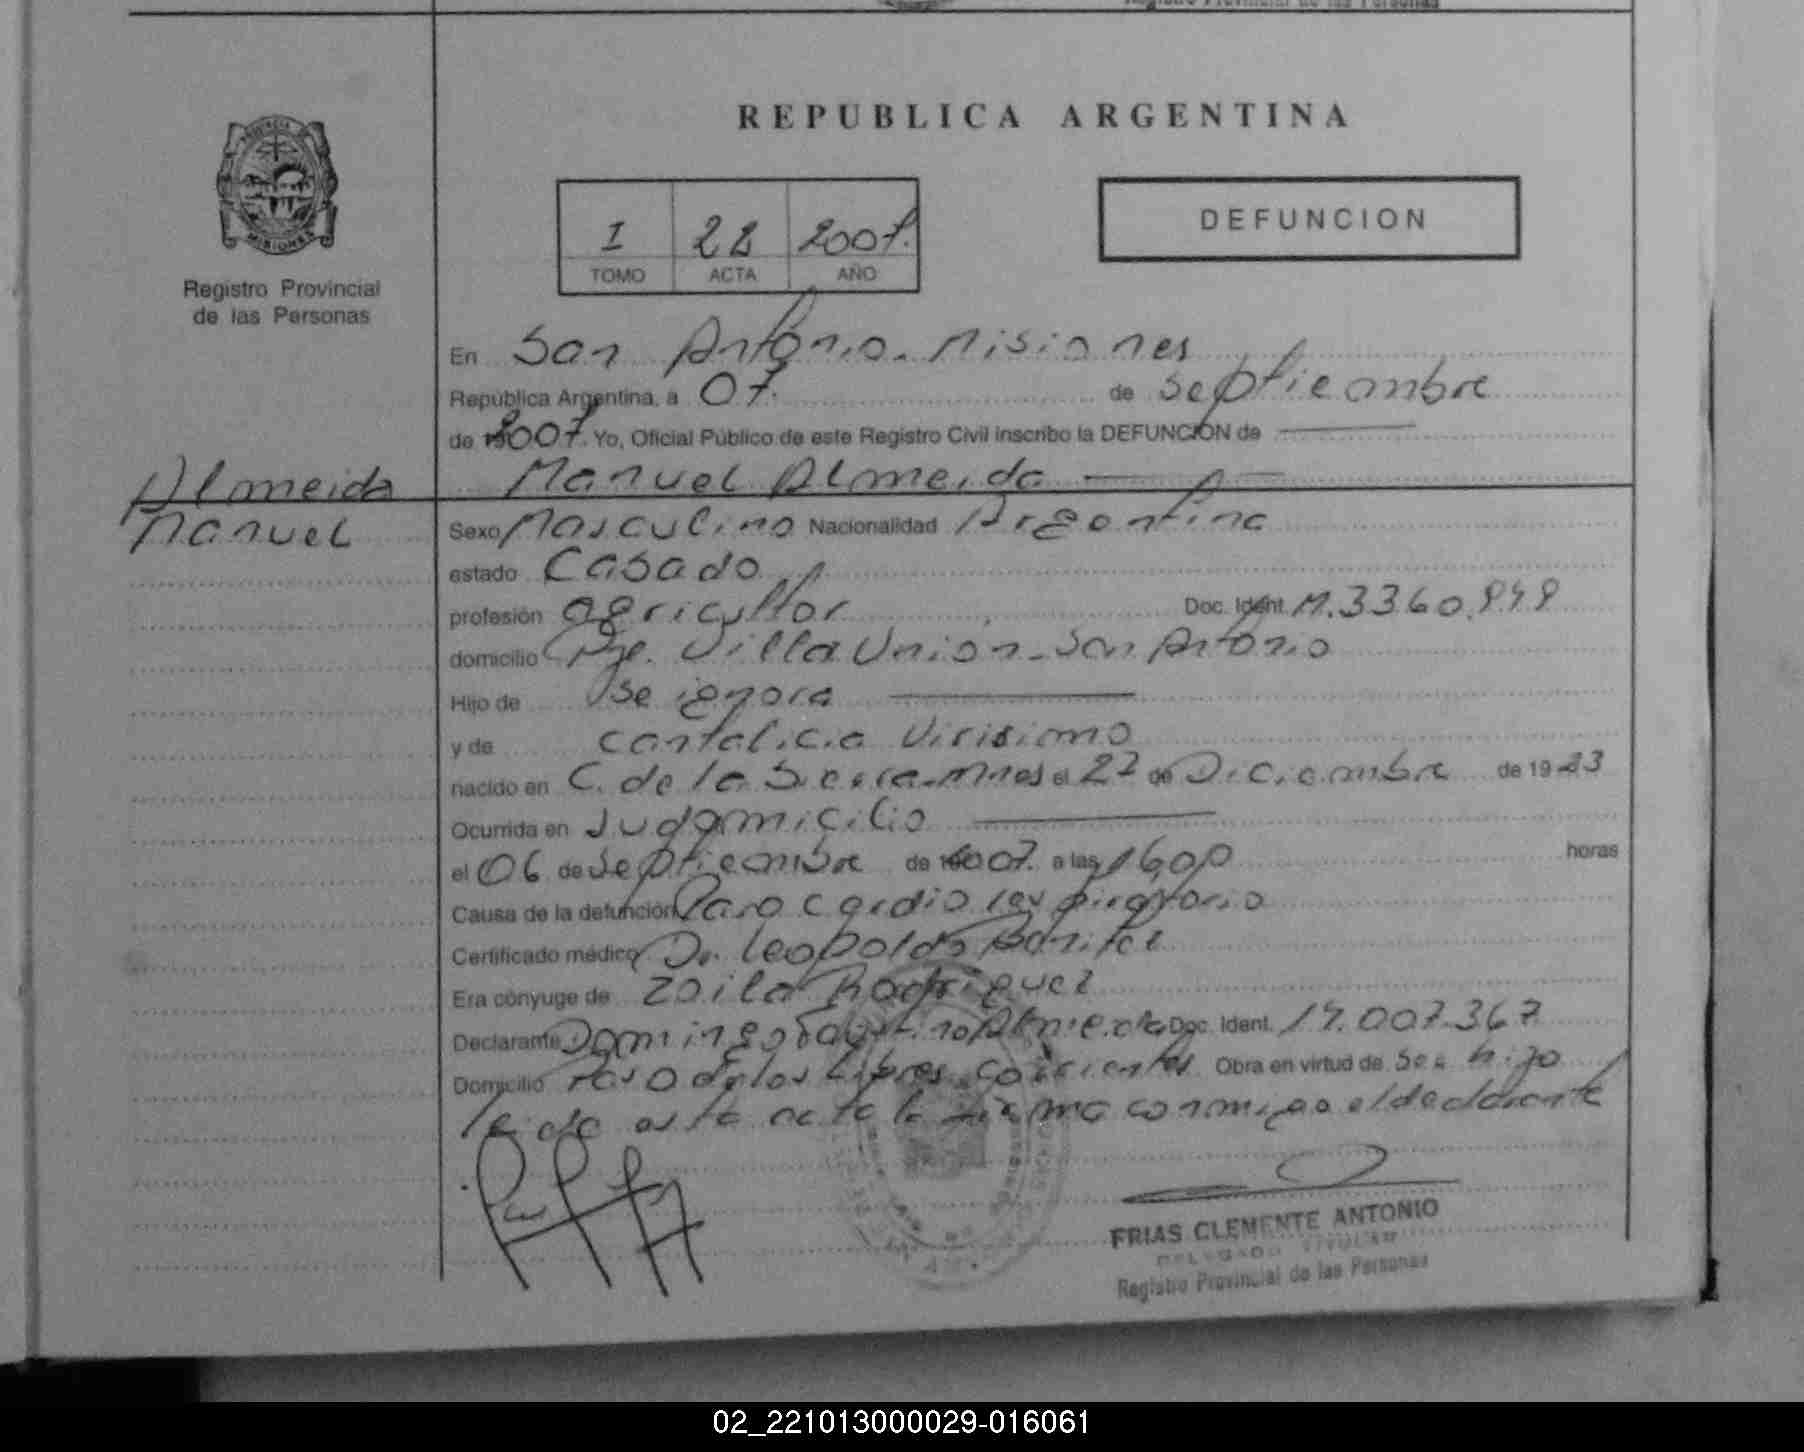 Registro Provincial de las Personas
REPUBLICA ARGENTINA
PROVINCIA DE
MISIONES
Registro Provincial
de las Personas
I 22 2007.
TOMO ACTA AÑO
DEFUNCION
En San Antonio. Misiones
República Argentina, a 07. de Septiembre
de 2007. Yo, Oficial Público de este Registro Civil inscribo la DEFUNCION de
Almeida
Manuel
Manuel Almeida
Sexo Masculino Nacionalidad Argentina
estado Casado
profesión agricultor Doc. Ident. M. 3360.949
domicilio Pje. Villa Unión - San Antonio
Hijo de Se ignora
y de Cantalicia Virisimo
nacido en C. de la Sierra-Mnes el 27 de Diciembre de 1923
Ocurrida en Sudomicilio
el 06 de Septiembre de 2007. a las 16,00 horas
Causa de la defunción Paro cardio respiratorio
Certificado médico Dr. Leopoldo Benitez
Era cónyuge de Zoila Rodriguez
Declarante Domingo Faustino Almeida Doc. Ident. 14.007.367
Domicilio Paso de los Libres. Corrientes Obra en virtud de Ser hijo
leida esta acta la firma conmigo el declarante
FRIAS CLEMENTE ANTONIO
DELEGADO TITULAR
Registro Provincial de las Personas
02_221013000029-016061